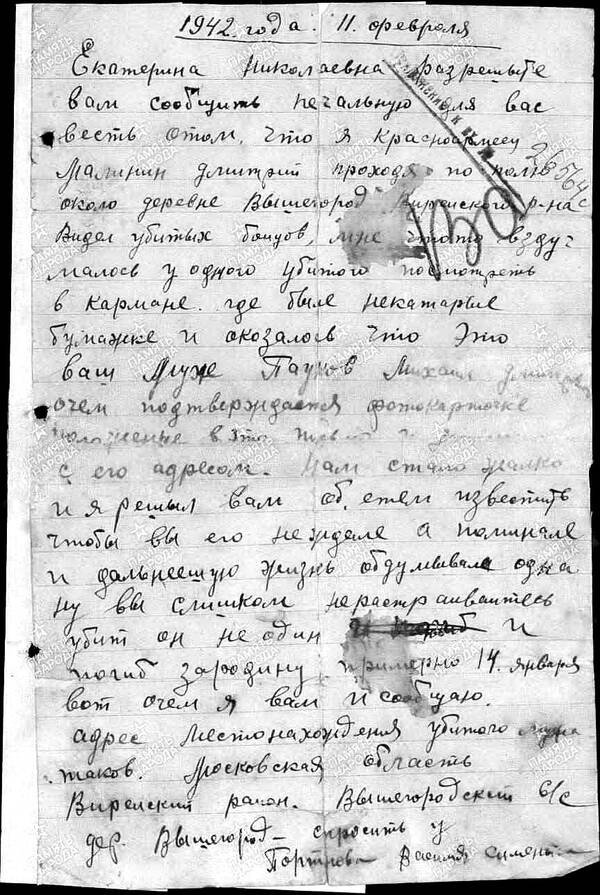 1942. года. 11. февраля
Екатерина Николаевна разрешыте
вам сообщить печальную для вас
весть отом, что я Красноармеец
Малинин дмитрий проходя по полю
около деревне Вышегород Вирейского р-на
Видел убитых бойцов, мне чтото взду-
малось у одного убитого посмотреть
в кармане. где были некатарые
бумашке и оказалось что Это
ваш Муж Паунов Михаил
очем подтверждается фотокарточке
в это
с его адресом. Нам стало жалко
и я решыл вам об, етем известить
чтобы вы его не ждале а поминале
и дальнеешую жизнь обдумывале одна
ну вы слишком нерастраиваитесь
убит он не один и
погиб зародину примерно 14. января
вот очем я вам и сообщаю.
адрес местонахождения убитого мужа
таков. Московская область
Вирейский район. Вышегородский с/с
дер. Вышегород- спросить у
Василия
28564